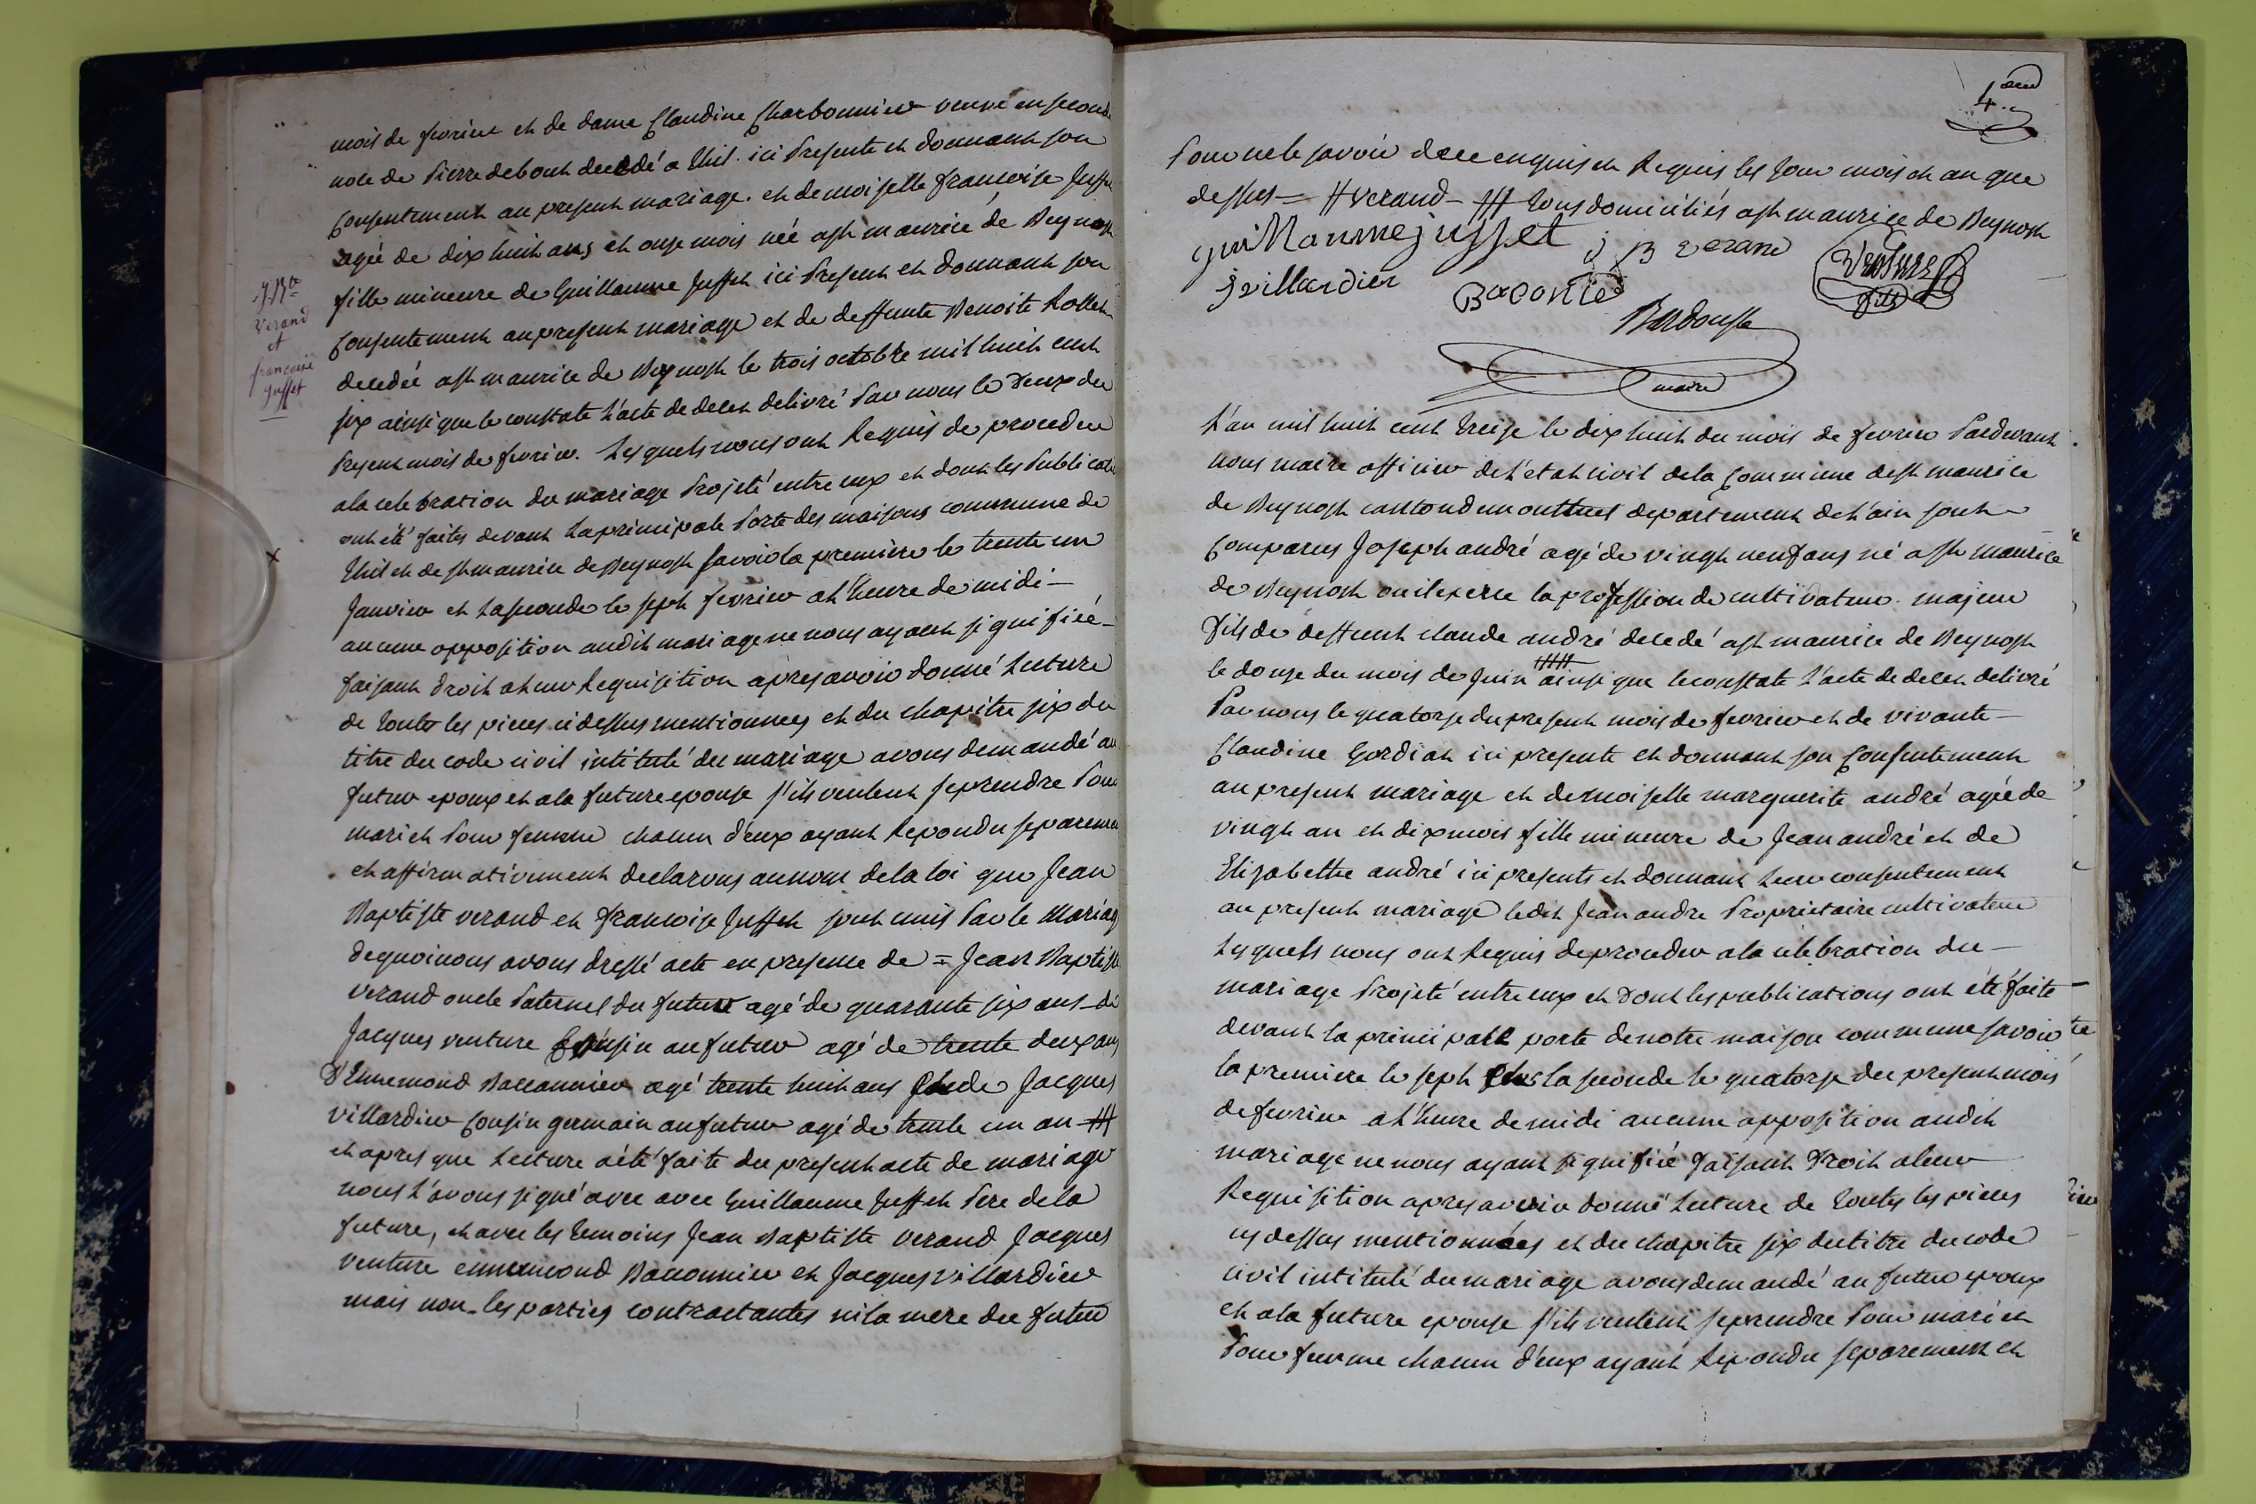 mois de fevrier et de dame Claudine Charbonnier veuve en seconde
noce de Pierre debout decedé a thil. ici presente et donnant son
Consentement au present mariage. et demoiselle francoise Jusset
agée de dix huit ans et onze mois née a st maurice de Beynost
fille mineure de Guillaume Jusset ici present et donnant son
Consentement au present mariage et de deffunte Benoite Rollet
decedée a st maurice de Beynost le trois octobre mil huit cent
six ainsi que le constate l'acte de deces delivré par nous le deux du
present mois de fevrier. Lesquels nous ont requis de proceder
a la celebration du mariage projeté entre eux et dont les publications
ont été faites devant la principale porte des maisons commune de
thil et de st maurice de Beynost savoir la premiere le trente un
Janvier et la seconde le sept fevrier a l'heure de midi –
aucune opposition audit mariage ne nous ayant signifiée –
faisant droit a leur requisition apres avoir donné lecture
de toutes les pieces ci dessus mentionnees et du chapitre six du
titre du code civil intitulé du mariage avons demandé au
futur epoux et a la future epouse s'ils veulent se prendre pour
mari et pour femme chacun d'eux ayant repondu separement
et affirmativement declarons au nom de la loi que Jean
Baptiste verand et francoise Jusset sont unis par le mariage
de quoi nous avons dressé acte en presence de = Jean Baptiste
verand oncle paternel du futur agé de quarante six ans – de
Jacques venture Cousin au futur agé de trente deux ans
d'Ennemond Baconnier agé trente huit ans de Jacques
villardier Cousin germain au futur agé de trente un an ###
et apres que lecture a été faite du present acte de mariage
nous l'avons signé avec avec Guillaume Jusset Pere de la
future, et avec les temoins Jean Baptiste verand Jacques
venture ennemond Baconnier et Jacques villardier
mais non les parties contractantes ni la mere du futur
J. Bte
Verand
et
francoise
Jusset
4.eme
Pour ne le savoir de ce enquis et requis les jour mois et an que
dessus = # verand – ### tous domiciliés a st maurice de Beynost
guillaume jusset j B verand Venture fils
j villardier Baconie
maire
L'an mil huit cent treize le dix huit du mois de fevrier Pardevant
nous maire officier de l'etat civil de la Commune de st maurice
de Beynost canton de montluel departement de l'ain sont
Comparus Joseph andré agé de vingt neuf ans né a st maurice
de Beynost ou il exerce la profession de cultivateur. majeur
fils de deffunt claude andré decedé a st maurice de Beynost
le douze du mois de juin ##### ainsi que le constate l'acte de deces delivré
Par nous le quatorze du present mois de fevrier et de vivante –
Claudine Gordiat ici presente et donnant son Consentement
au present mariage et demoiselle marguerite andré agée de
vingt an et dix mois fille mineure de Jean andré et de
Elizabethe andré ici presents et donnant leur consentement
au present mariage ledit Jean andre Proprietaire cultivateur
Lesquels nous ont requis de proceder a la celebration du –
mariage Projeté entre eux et dont les publications ont été faite –
devant la principale porte de notre maison commune savoir
la premiere le sept la seconde le quatorze du present mois
de fevrier a l'heure de midi aucune opposition audit
mariage ne nous ayant signifiée faisant droit a leur
Requisition apres avoir donné lecture de toutes les pieces
cy dessus mentionnées et du chapitre six du titre du code
civil intitulé du mariage avons demandé au futur epoux
et a la future epouse s'ils veulent se prendre pour mari et
Pour femme chacun d'eux ayant repondu separement et